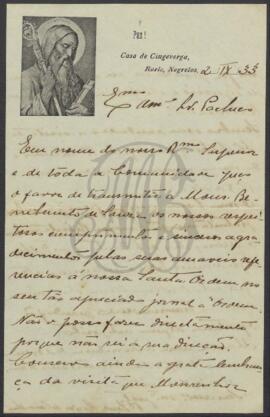 Paz!
Casa de Cingeverga,
Roriz, Negrelos, 2 IX 33
Exmo
Amo Sr. Pacheco
Em nome do nosso Rmo Superior
e de toda a Comunidade peço
o favor de transmitir a Mons.
de os nossos respei
tosos cumprimentos e sinceros agra
decimentos pelas suas amaveis refe
rencias á nossa Santa Ordem no
seu tão apreciado jornal A Ordem.
Não o posso fazer directamente
porque não sei a sua direcção.
Conservo ainda a grata lembran
ça da visita que Monsenhor